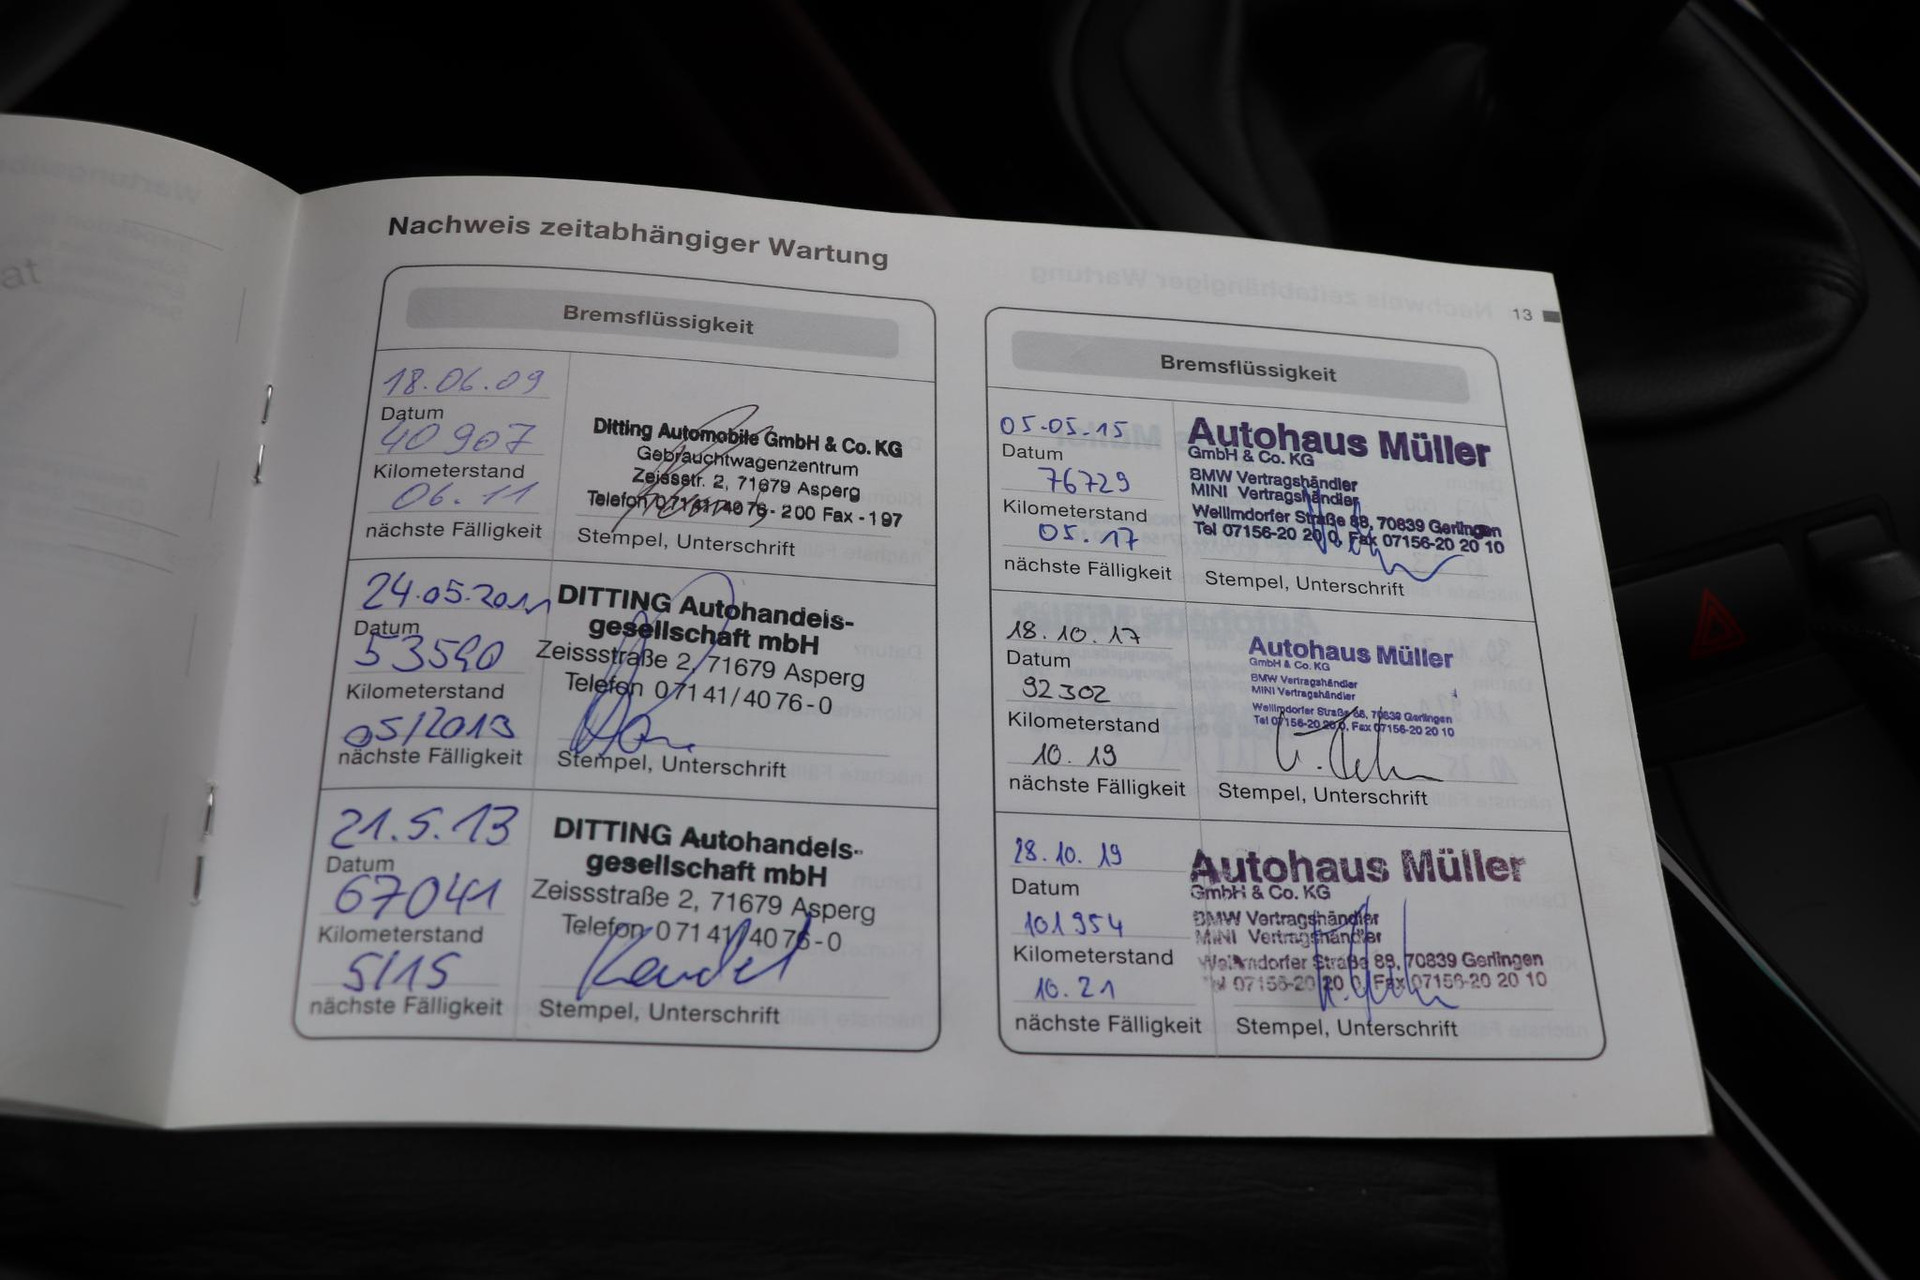 Nachweis zeitabhängiger Wartung
13
Bremsflüssigkeit
18.06.09
Datum
40907
Kilometerstand
06.11
nächste Fälligkeit
Ditting Automobile GmbH & Co. KG
Gebrauchtwagenzentrum
Zeissstr. 2, 71679 Asperg
Telefon 07141/4076-200 Fax -197
Stempel, Unterschrift
24.05.2011
Datum
53590
Kilometerstand
05/2013
nächste Fälligkeit
DITTING Autohandels-
gesellschaft mbH
Zeissstraße 2, 71679 Asperg
Telefon 07141/4076-0
Stempel, Unterschrift
21.5.13
Datum
67041
Kilometerstand
5/15
nächste Fälligkeit
DITTING Autohandels-
gesellschaft mbH
Zeissstraße 2, 71679 Asperg
Telefon 07141/4076-0
Stempel, Unterschrift
Bremsflüssigkeit
05.05.15
Datum
76729
Kilometerstand
05.17
nächste Fälligkeit
Autohaus Müller
GmbH & Co. KG
BMW Vertragshändler
MINI Vertragshändler
Weilimdorfer Straße 88, 70839 Gerlingen
Tel 07156-20 20 0, Fax 07156-20 20 10
Stempel, Unterschrift
18.10.17
Datum
92302
Kilometerstand
10.19
nächste Fälligkeit
Autohaus Müller
GmbH & Co. KG
BMW Vertragshändler
MINI Vertragshändler
Weilimdorfer Straße 88, 70839 Gerlingen
Tel 07156-20 20 0, Fax 07156-20 20 10
Stempel, Unterschrift
28.10.19
Datum
101954
Kilometerstand
10.21
nächste Fälligkeit
Autohaus Müller
GmbH & Co. KG
BMW Vertragshändler
MINI Vertragshändler
Weilimdorfer Straße 88, 70839 Gerlingen
Tel 07156-20 20 0, Fax 07156-20 20 10
Stempel, Unterschrift